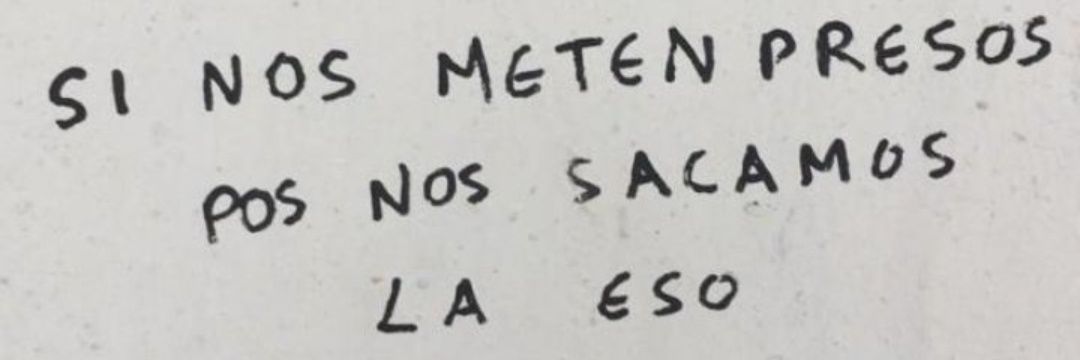 SI NOS METEN PRESOS
POS NOS SACAMOS
LA ESO